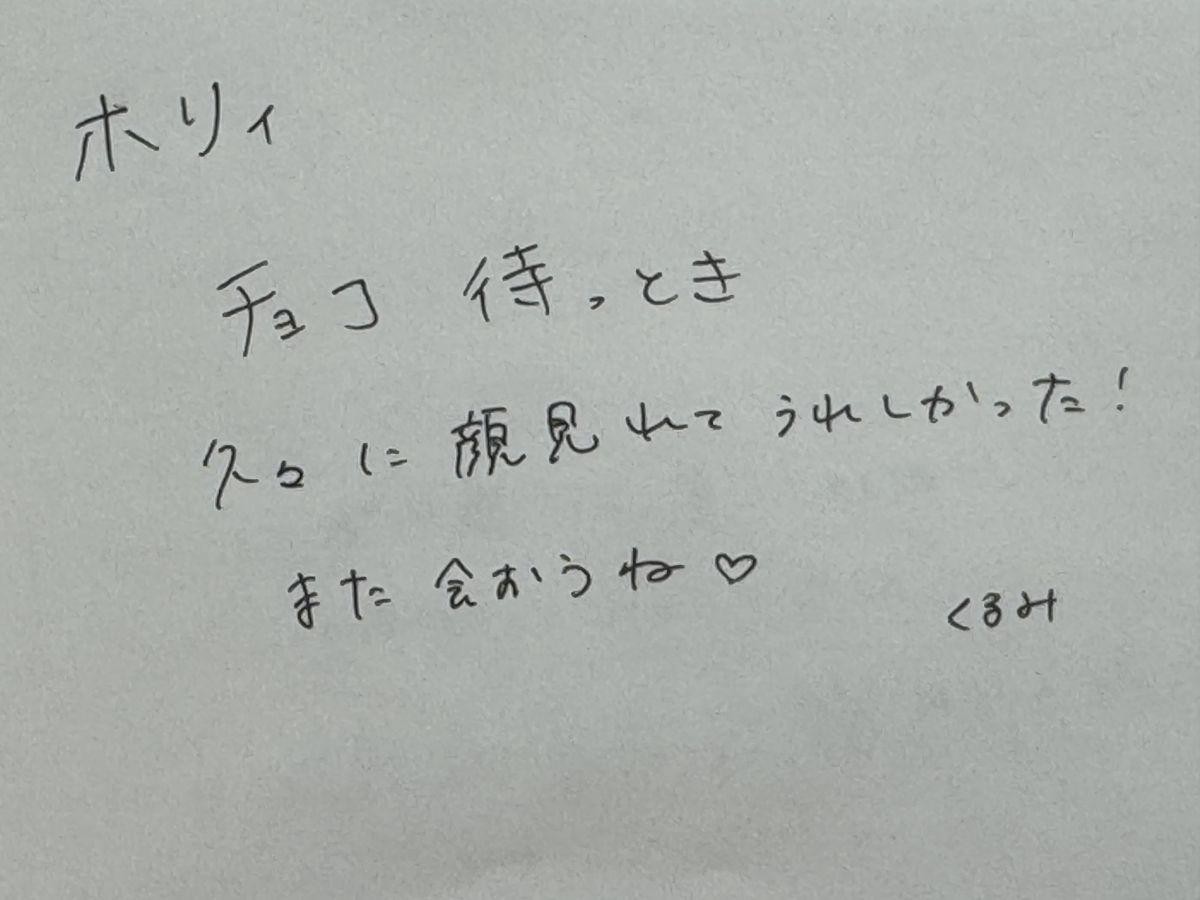 ホリィ
チョコ 待っとき
久々に顔見れてうれしかった!
また会おうね♡
くるみ